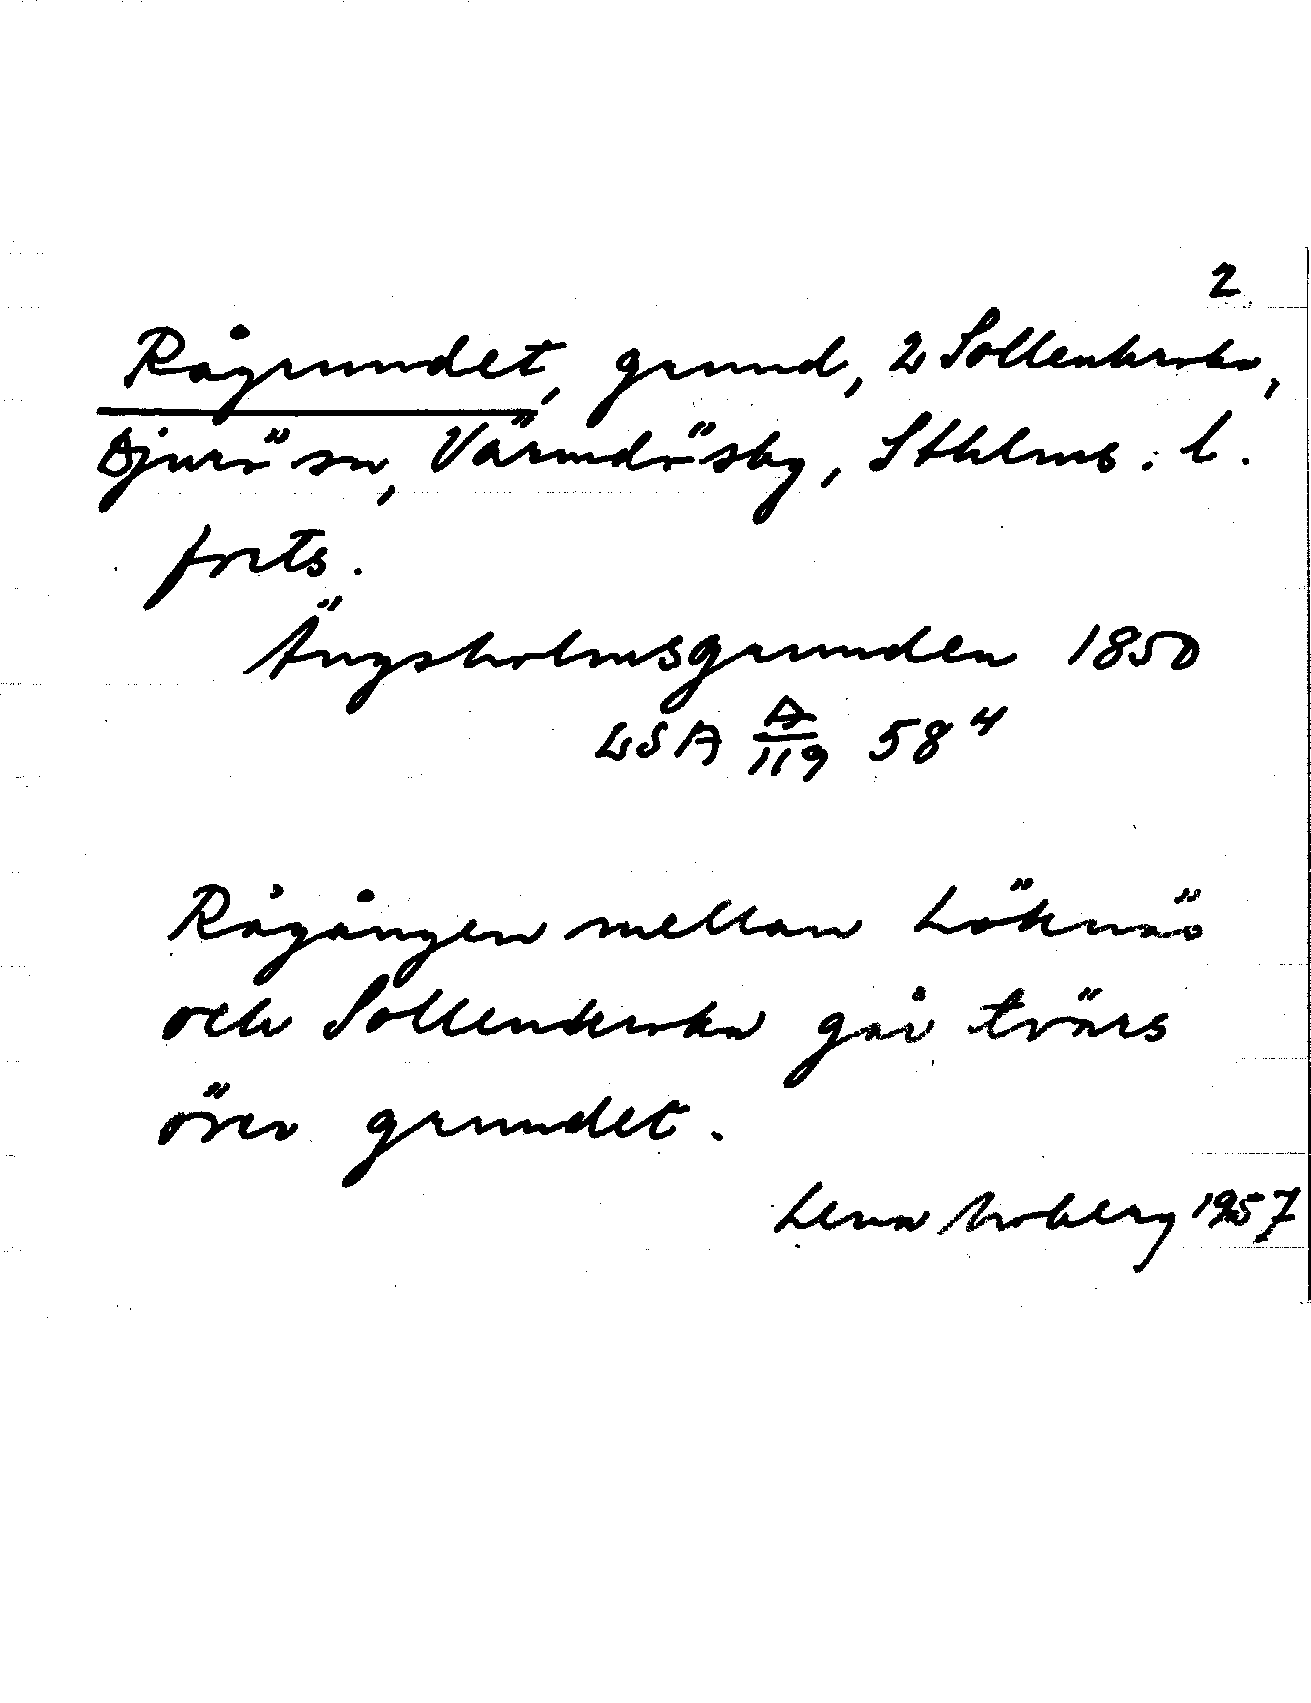 2
Rågrundet, grund, 2 Sollenkroka,
Djurö sn, Värmdö sbg, Sthlms. l.
forts.
Ängsholmsgrunden 1850
LSA A/119 58⁴
Rågången mellan Löknäs
och Sollenkroka går tvärs
över grundet.
Lena Moberg 1957